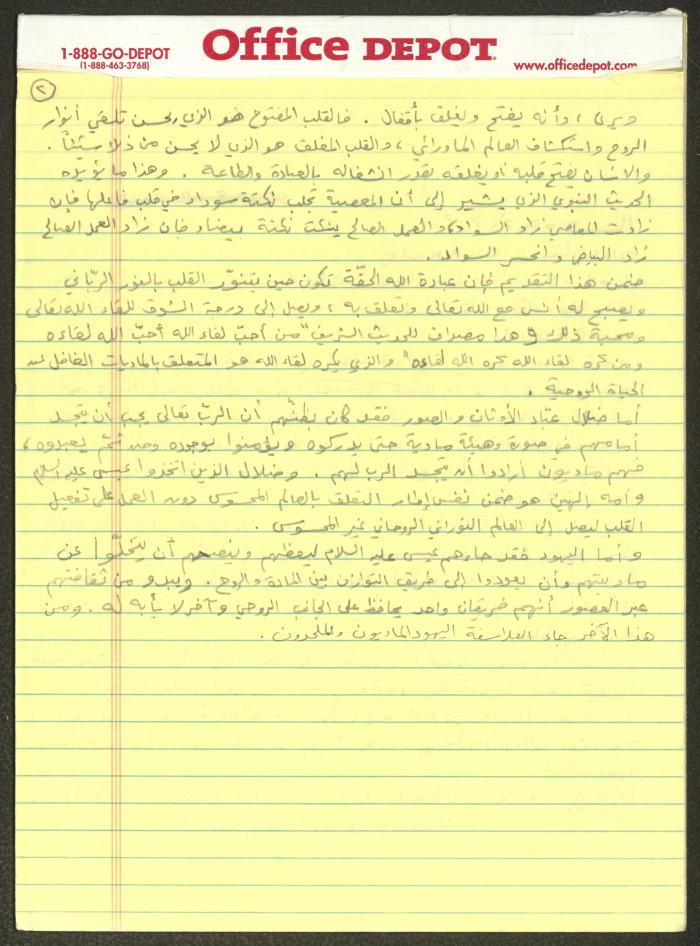 1-888-GO-DEPOT
(1-888-463-3768)
Office DEPOT
www.officedepot.com
٢
ويرى ، وأنه يفتح ويغلق بأقفال . فالقلب المفتوح هو الذي يحسن تلقي أنوار
الروح واستكشاف العالم الماورائي ، والقلب المغلق هو الذي لا يحسن من ذلك شيئاً .
والانسان يفتح قلبه أو يغلقه بقدر انشغاله بالعبادة والطاعة . وهذا ما يؤيده
الحديث النبوي الذي يشير إلى أن المعصية تجلب نكتة سوداء في قلب فاعلها فإن
زادت المعاصي زاد السواد ، والعمل الصالح ينكت نكتة بيضاء فإن زاد العمل الصالح
زاد البياض وانحسر السواد .
ضمن هذا التقديم فإن عبادة الله الحقّة تكون حين يتنوّر القلب بالنور الربّاني
ويصبح له أنس مع الله تعالى وتعلق به ، ويصل إلى درجة الشوق للقاء الله تعالى
ومحبة ذلك و هذا مصداق للحديث الشريف "من أحبّ لقاء الله أحبّ الله لقاءه
ومن كره لقاء الله كره الله لقاءه" والذي يكره لقاء الله هو المتعلق بالماديات الغافل عن
الحياة الروحية .
أما ضلال عبّاد الأوثان والصور فقد كان بظنّهم أن الربّ تعالى يجب أن يتجسد
أمامهم في صورة وهيئة مادية حتى يدركوه ويؤمنوا بوجوده ومن ثمّ يعبدوه ،
فهم ماديون أرادوا أن يتجسد الرب لهم . وضلال الذين اتخذوا عيسى عليه السلام
وأمه إلهين هو ضمن نفس إطار التعلق بالعالم المحسوس دون العمل على تفعيل
القلب ليصل إلى العالم النوراني الروحاني غير المحسوس .
وأما اليهود فقد جاءهم عيسى عليه السلام ليعظهم وينصحهم أن يتخلّوا عن
ماديتهم وأن يعودوا إلى طريق التوازن بين المادة والروح . ويبدو من ثقافتهم
عبر العصور أنهم فريقان واحد يحافظ على الجانب الروحي وآخر لا يأبه له . ومن
هذا الآخر جاء الفلاسفة اليهود الماديون والملحدون .